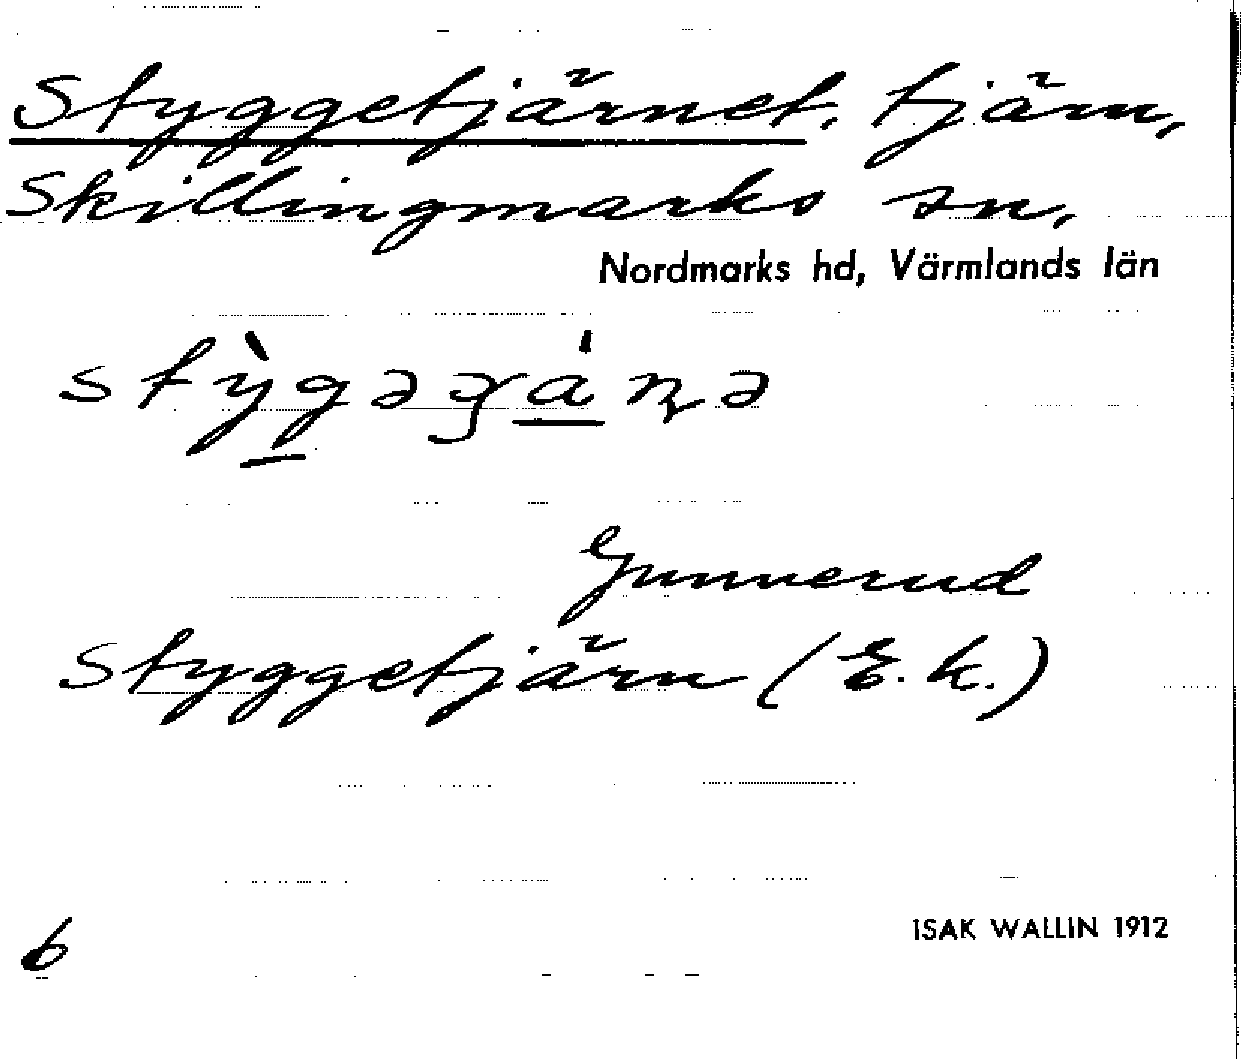 Styggetjärnet, tjärn,
Skillingmarks sn,
Nordmarks hd, Värmlands län
Gunnerud
Styggetjärn (E.k.)
6
ISAK WALLIN 1912